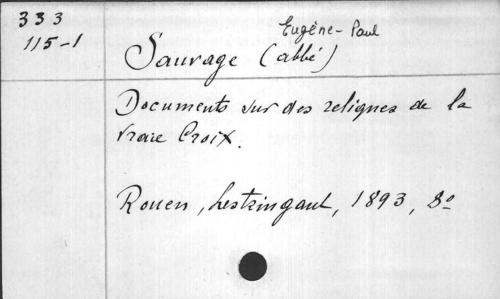 333
115-1
Eugène-Paul
Sauvage (abbé)
Documents sur des reliques de la
vraie Croix.
Rouen, Lestringant, 1893, 8º